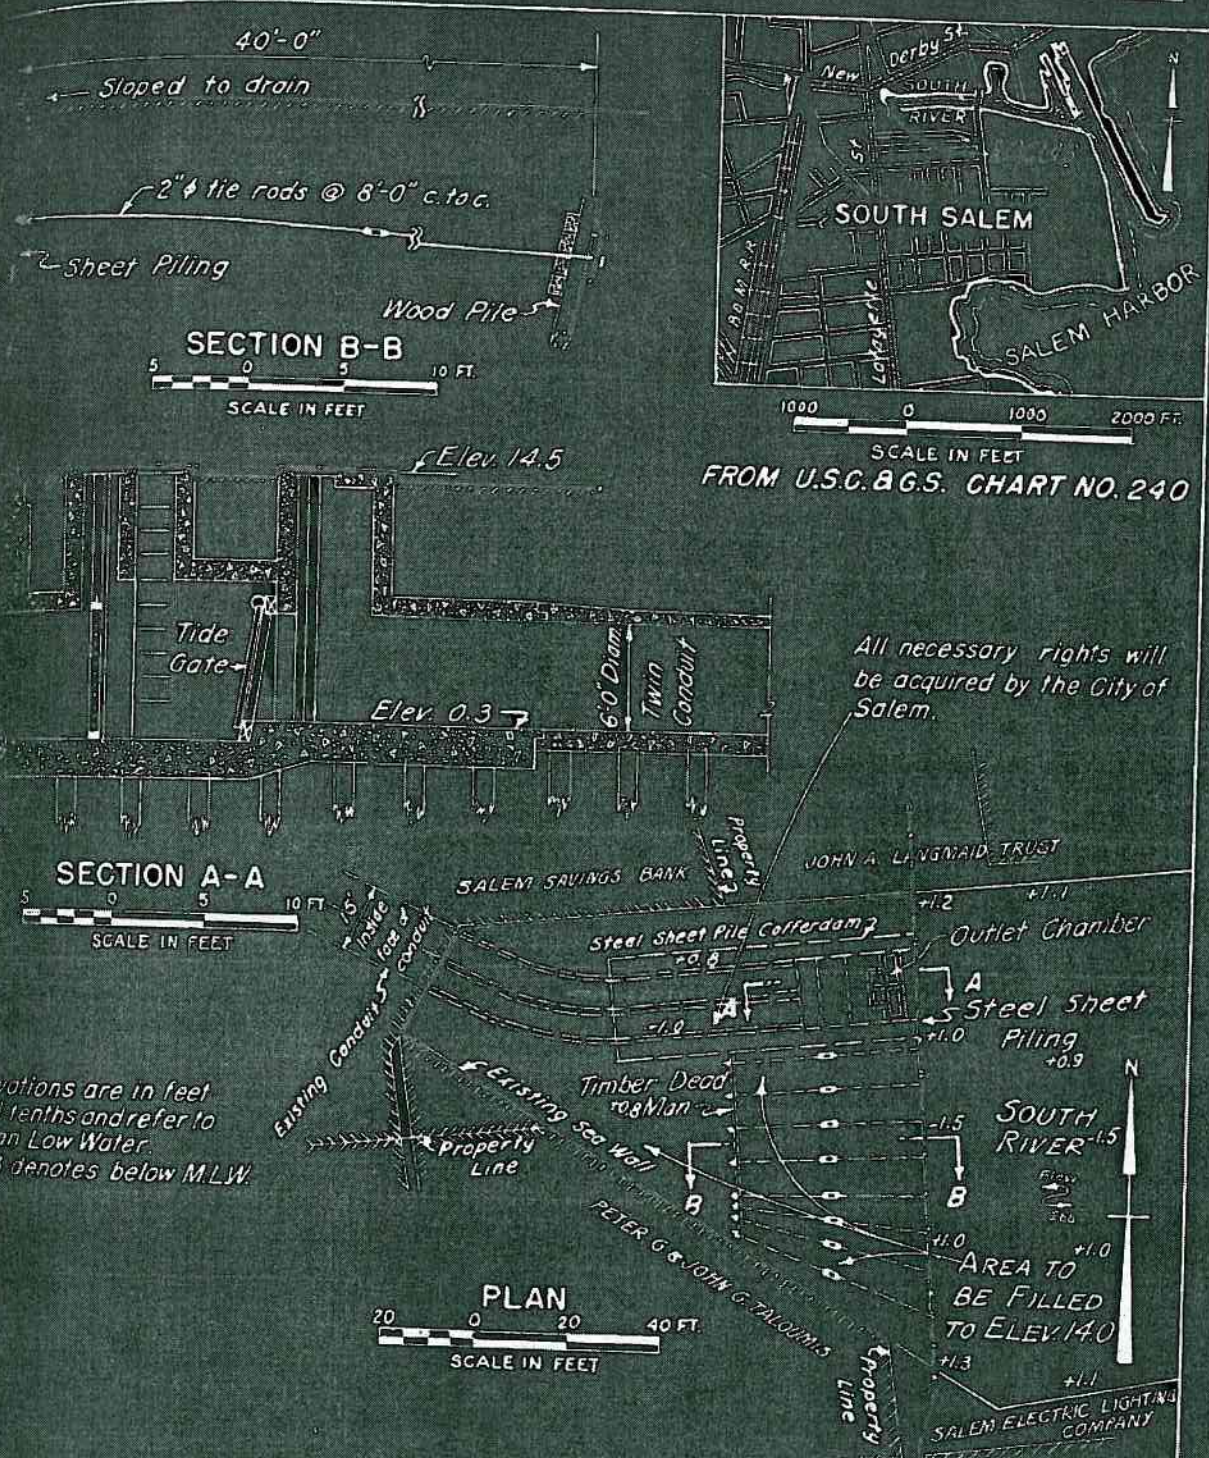 40'-0"
Sloped to drain
2"ϕ tie rods @ 8'-0" c. to c.
Sheet Piling
Wood Pile
SECTION B-B
5 0 5 10 FT.
SCALE IN FEET
New Derby St.
SOUTH
RIVER
St
SOUTH SALEM
B. & M. R.R.
Lafayette
SALEM HARBOR
N
1000 0 1000 2000 FT.
SCALE IN FEET
FROM U.S.C.&G.S. CHART NO. 240
Elev. 14.5
Tide
Gate
Elev. 0.3
6'-0" Diam.
Twin
Conduit
All necessary rights will
be acquired by the City of
Salem.
SECTION A-A
5 0 5 10 FT
SCALE IN FEET
15'
Inside
face of
conduit
SALEM SAVINGS BANK
Property
Line
JOHN A. LANGMAID TRUST
+1.2
+1.1
Steel Sheet Pile Cofferdam
+0.8
Outlet Chamber
A
A
Steel Sheet
Piling
-1.0
+1.0
+0.9
Existing Conduit
Existing Sea Wall
Timber Dead
+0.8 Man
Property
Line
-1.5
SOUTH
RIVER -1.5
Flow
Ebb
N
B
B
vations are in feet
tenths and refer to
an Low Water.
denotes below M.L.W.
PETER G & JOHN G. TALOUMIS
+1.0
+1.0
AREA TO
BE FILLED
TO ELEV. 14.0
PLAN
20 0 20 40 FT.
SCALE IN FEET
+1.3
+1.1
Property
Line
SALEM ELECTRIC LIGHTING
COMPANY